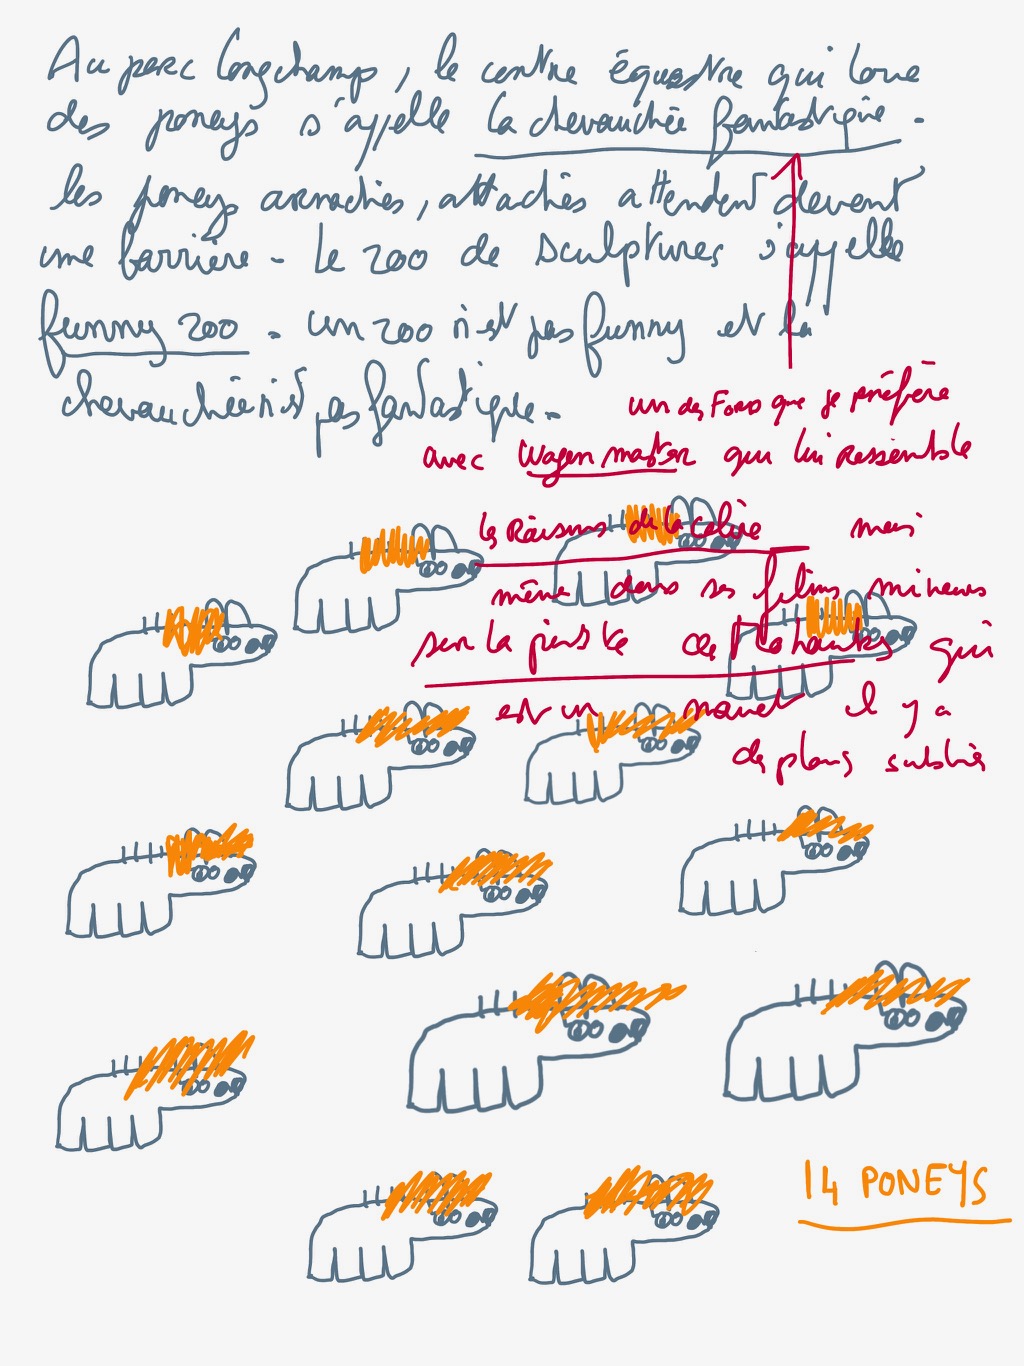 Au parc Longchamp, le centre équestre qui loue
des poneys s'appelle la chevauchée fantastique.
les poneys arnachés, attachés attendent devant
une barrière - Le zoo de sculptures s'appelle
funny zoo. Un zoo n'est pas funny et la
chevauchée n'est pas fantastique.
un des Ford que je préfère
avec Wagon master qui lui ressemble
les Raisins de la colère mais
même dans ses films mineurs
sur la piste des Mohawks qui
est un navet il y a
des plans sublimes
14 PONEYS